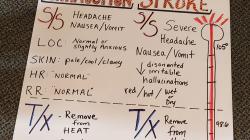 STROKE
S/S HEADACHE
NAUSEA/VOMIT
LOC: Normal or
slightly Anxious
SKIN: pale/cool/clammy
HR "NORMAL"
RR "NORMAL"
T/X - Remove
from
HEAT
S/S Severe
Headache
Nausea/Vomit
↓ disoriented
irritable
hallucinations
red/hot/wet
Dry
T/X - Remove
from
105°
98.6